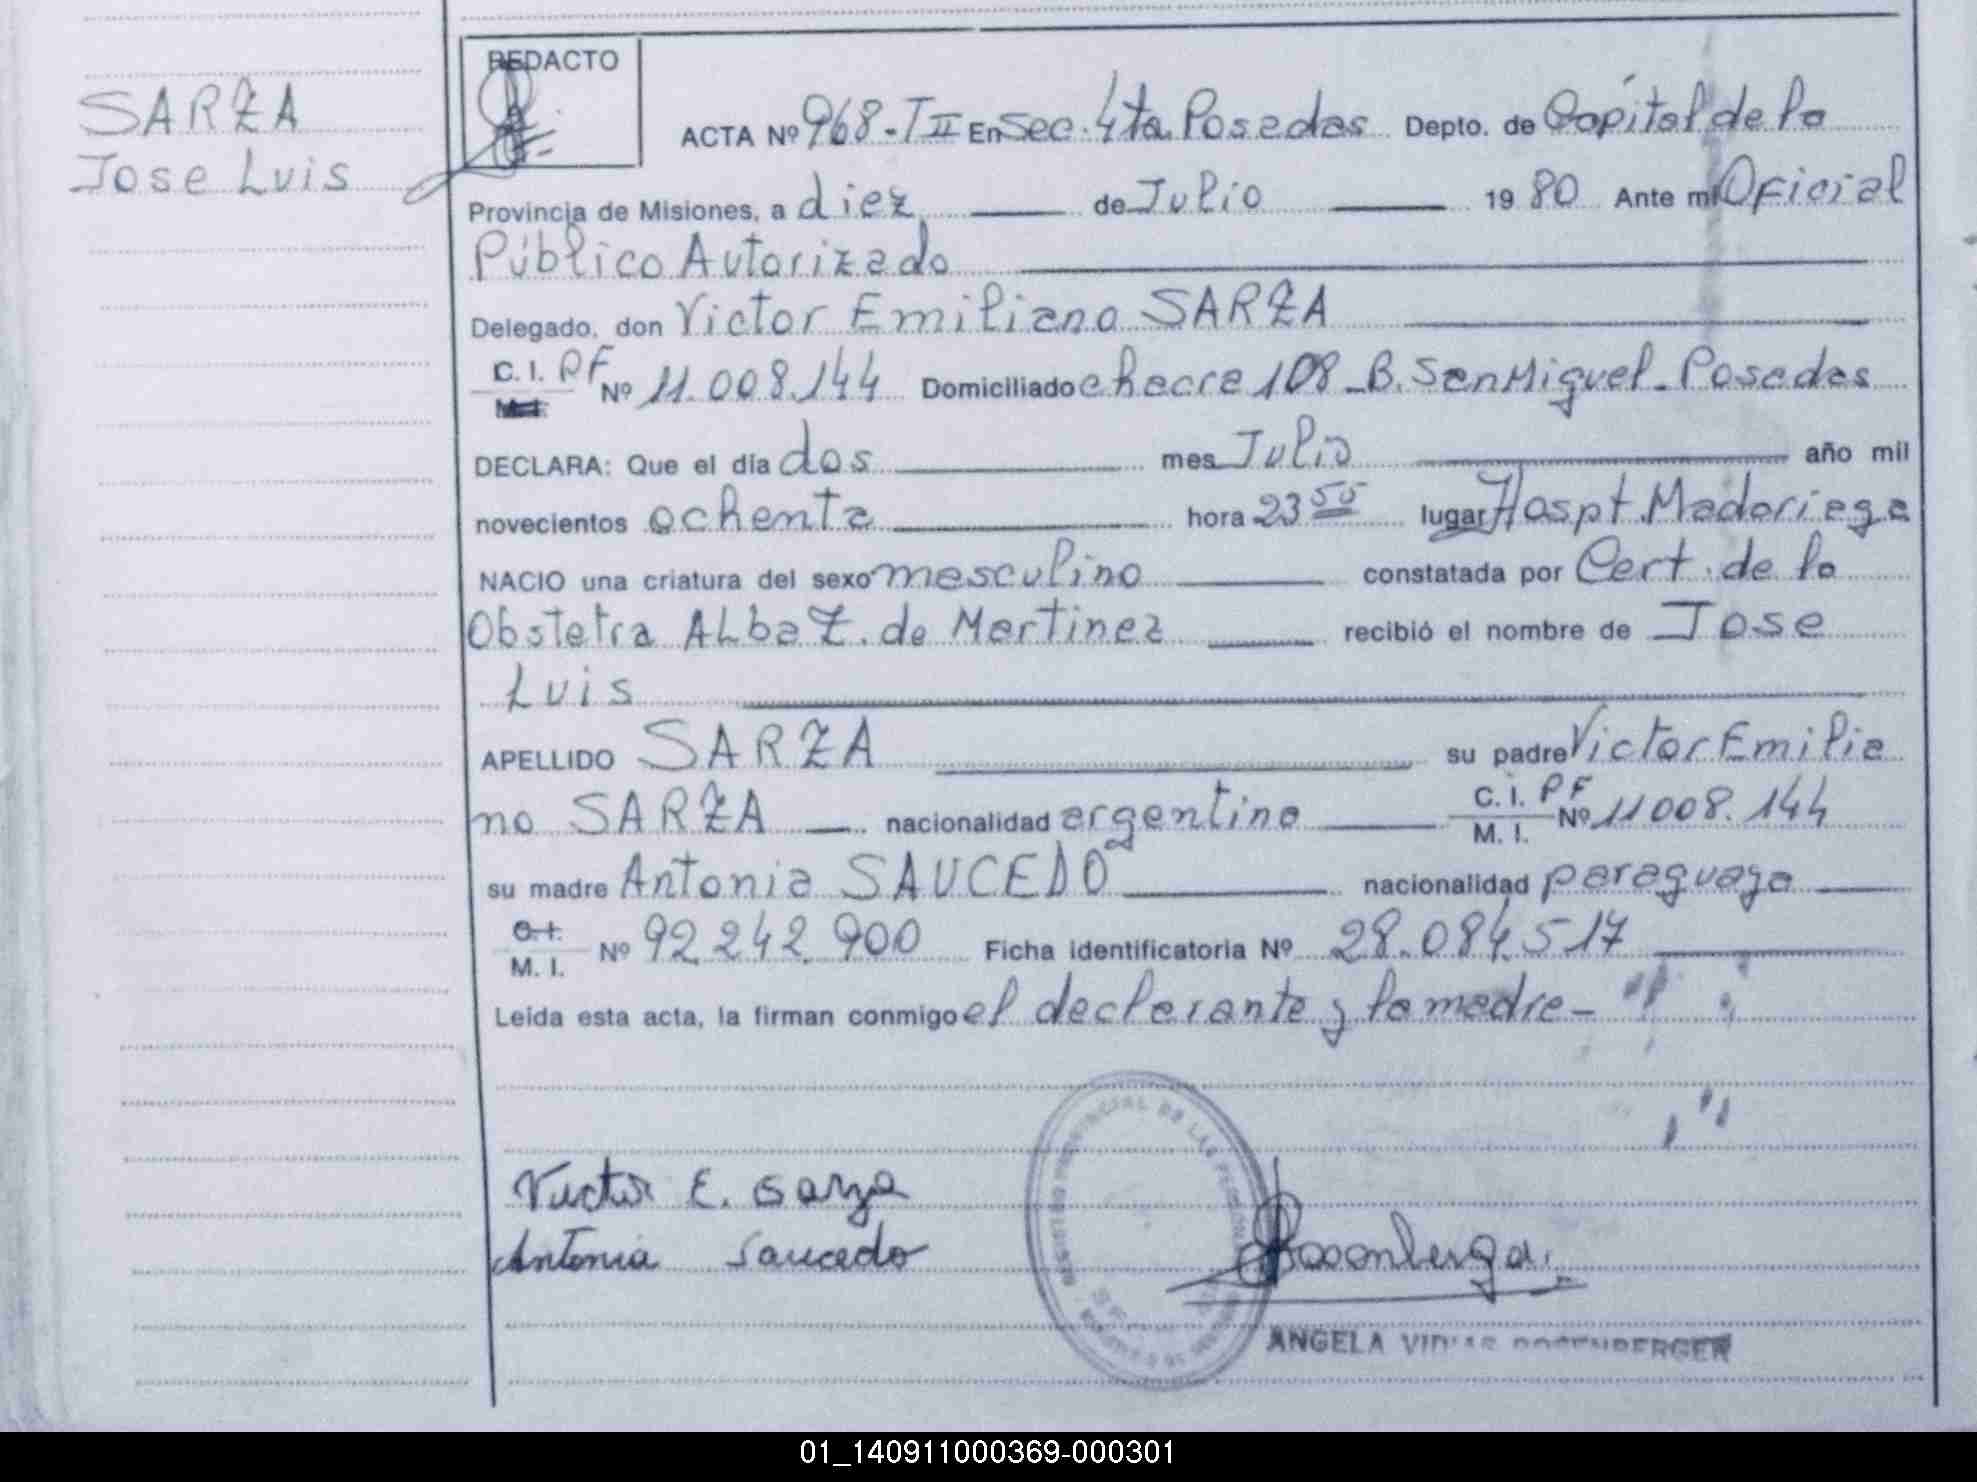 SARZA
Jose Luis
REDACTO
ACTA Nº 968-T II En Sec. 4ta Posadas Depto. de Capital de la
Provincia de Misiones, a diez de Julio 19 80 Ante mi Oficial
Público Autorizado
Delegado, don Victor Emiliano SARZA
C. I. PF
M.I. Nº 11.008.144 Domiciliado chacra 108_B. San Miguel_Posadas
DECLARA: Que el día dos mes Julio año mil
novecientos ochenta hora 23 55 lugar Hospt. Madariaga
NACIO una criatura del sexo masculino constatada por Cert. de la
Obstetra ALba Z. de Martinez recibió el nombre de Jose
Luis
APELLIDO SARZA su padre Victor Emilia
no SARZA nacionalidad argentino C. I. PF
M. I. Nº 11008.144
su madre Antonia SAUCEDO nacionalidad paraguaya
C.I.
M. I. Nº 92.242.900 Ficha identificatoria Nº 28.084.517
Leida esta acta, la firman conmigo el declarante y la madre-
PROVINCIAL DE LAS PERSONAS
Victor E. Sarza
Antonia Saucedo
ANGELA ROSENBERGER
01_140911000369-000301